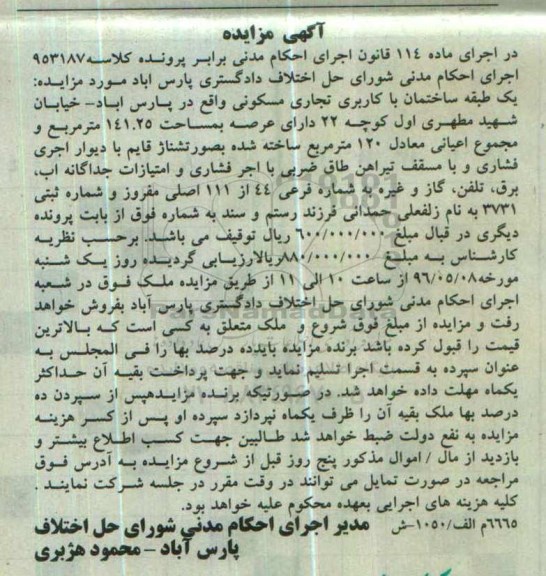 آگهی مزایده
در اجرای ماده ۱۱٤ قانون اجرای احکام مدنی برابر پرونده کلاسه۹۵۳۱۸۷
اجرای احکام مدنی شورای حل اختلاف دادگستری پارس اباد مورد مزایده:
یک طبقه ساختمان با کاربری تجاری مسکونی واقع در پارس اباد- خیابان
شهید مطهری اول کوچه ۲۲ دارای عرصه بمساحت ۱٤۱.۲۵ مترمربع و
مجموع اعیانی معادل ۱۲۰ مترمربع ساخته شده بصورتشناژ قایم با دیوار اجری
فشاری و با مسقف تیراهن طاق ضربی با اجر فشاری و امتیازات جداگانه اب،
برق، تلفن، گاز و غیره با شماره فرعی ٤٤ از ۱۱۱ اصلی مفروز و شماره ثبتی
۳۷۳۱ به نام زلفعلی حمدانی فرزند رستم و سند به شماره فوق از بابت پرونده
دیگری در قبال مبلغ ۶۰۰/۰۰۰/۰۰۰ ریال توقیف می باشد. برحسب نظریه
کارشناس به مبلغ ۸۸۰/۰۰۰/۰۰۰ریالارزیابی گردیده روز یک شنبه
مورخه۹۶/۰۵/۰۸ از ساعت ۱۰ الی ۱۱ از طریق مزایده ملک فوق در شعبه
اجرای احکام مدنی شورای حل اختلاف دادگستری پارس آباد بفروش خواهد
رفت و مزایده از مبلغ فوق شروع و ملک متعلق به کسی است که بالاترین
قیمت را قبول کرده باشد برنده مزایده بایدده درصد بها را فی المجلس به
عنوان سپرده به قسمت اجرا تسلیم نماید و جهت پرداخت بقیه آن حداکثر
یکماه مهلت داده خواهد شد. در صورتیکه برنده مزایدهپس از سپردن ده
درصد بها ملک بقیه آن را ظرف یکماه نپردازد سپرده او پس از کسر هزینه
مزایده به نفع دولت ضبط خواهد شد طالبین جهت کسب اطلاع بیشتر و
بازدید از مال / اموال مذکور پنج روز قبل از شروع مزایده به آدرس فوق
مراجعه در صورت تمایل می توانند در وقت مقرر در جلسه شرکت نمایند .
کلیه هزینه های اجرایی بعهده محکوم علیه خواهد بود.
۶۶۶۵م الف/۱۰۵۰-ش مدیر اجرای احکام مدنی شورای حل اختلاف
پارس آباد - محمود هژبری